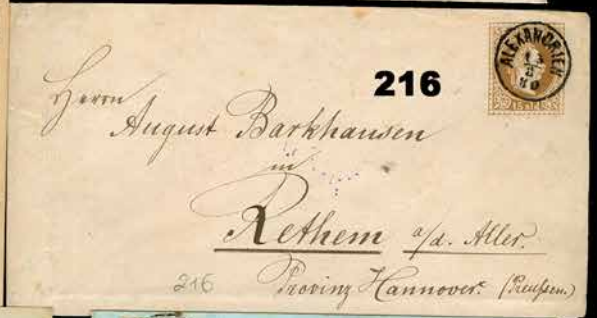 ALEXANDRIEN
80
15 sld
216
Herrn
August Barkhausen
in
Rethem a/d. Aller.
Provinz Hannover. (Preußen.)
216